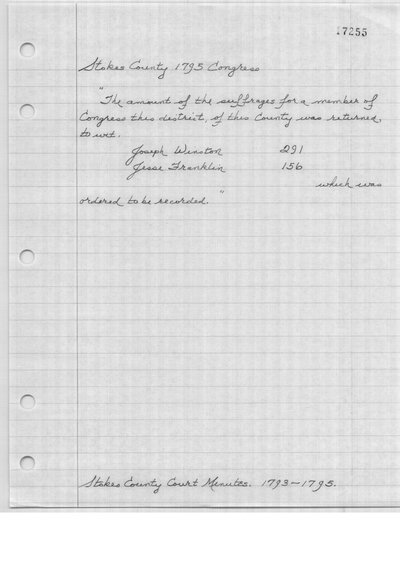 17255
Stokes County 1795 Congress
"The amount of the suffrages for a member of
Congress this destrict, of this County was returned,
to wit.
Joseph Winston 291
Jesse Franklin 156
which was
ordered to be recorded."
Stokes County Court Minutes. 1793-1795.